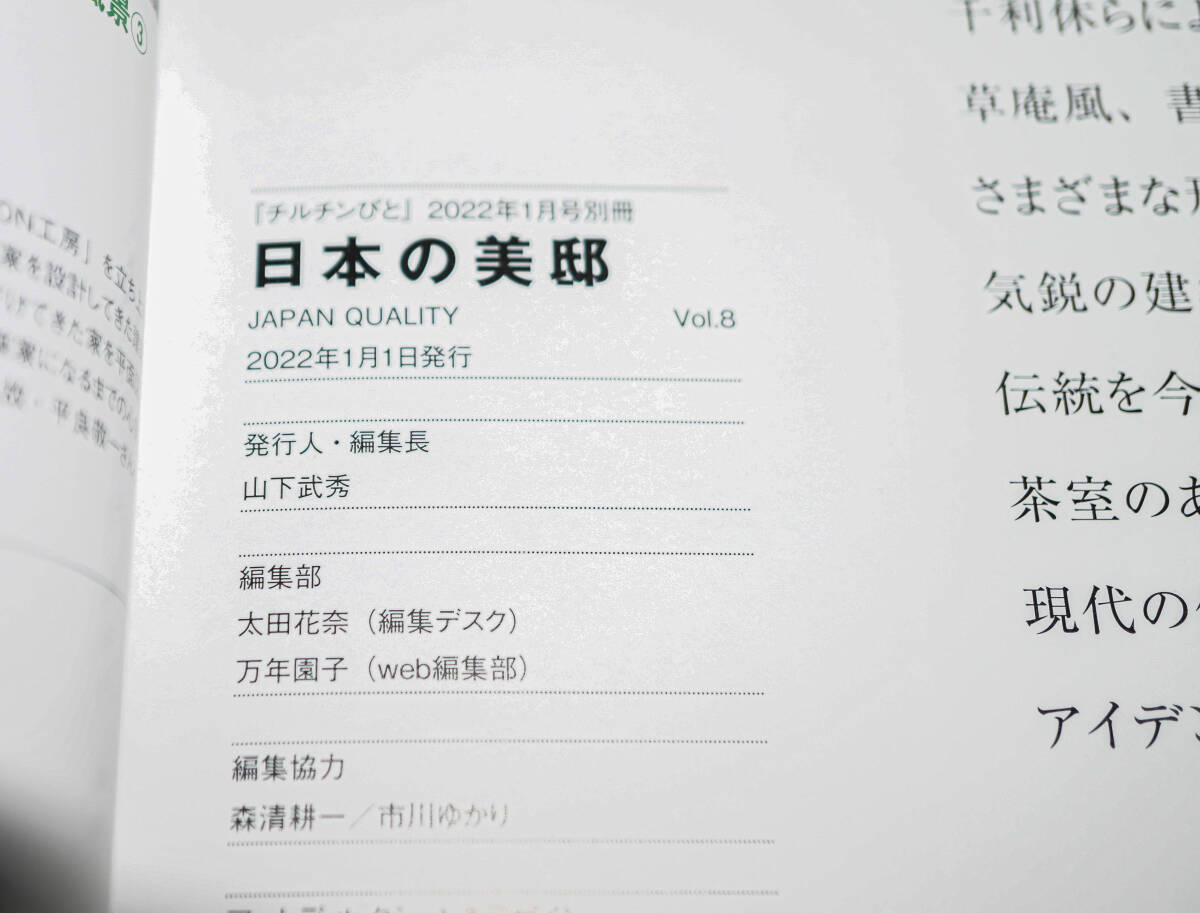 景③
ON工房」を立ち上
家を設計してきた
けてきた家を平面
家になるまでの
『チルチンびと』2022年1月号別冊
日本の美邸
JAPAN QUALITY Vol.8
2022年1月1日発行
発行人・編集長
山下武秀
編集部
太田花奈（編集デスク）
万年園子（web編集部）
編集協力
森清耕一／市川ゆかり
千利休らによ
草庵風、書
さまざまな形
気鋭の建
伝統を今
茶室のあ
現代の
アイデン